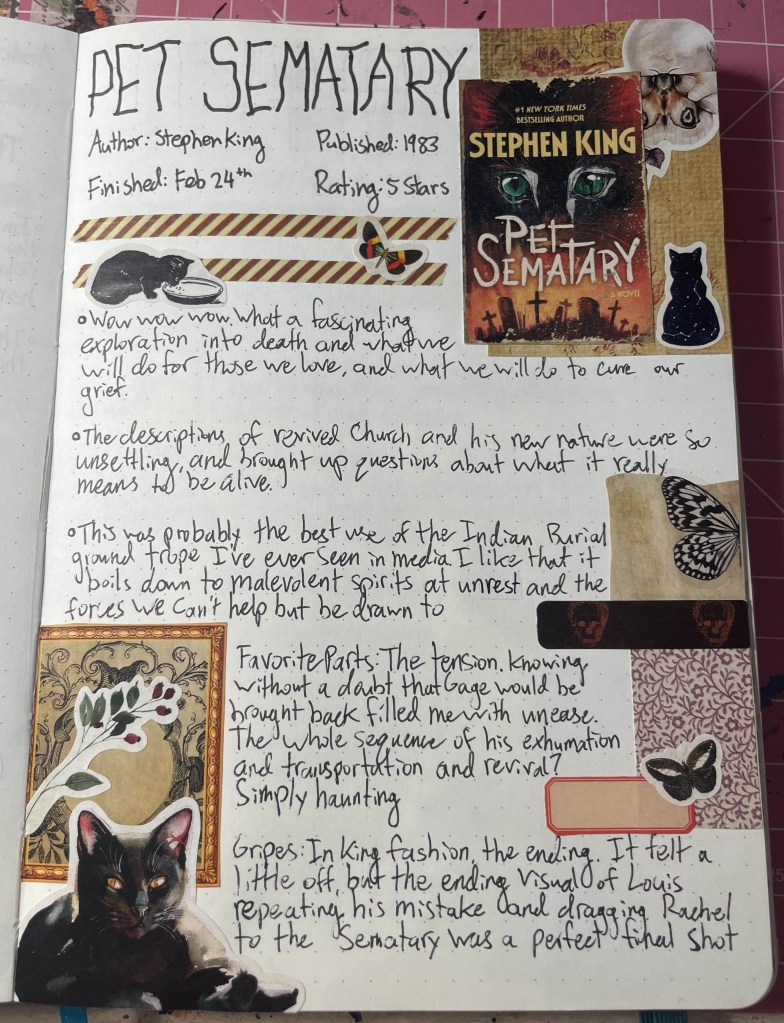 PET SEMATARY
Author: Stephen King
Published: 1983
Finished: Feb 24th
Rating: 5 Stars
#1 NEW YORK TIMES
BESTSELLING AUTHOR
STEPHEN KING
PET
SEMATARY
A NOVEL
Wow wow wow. What a fascinating
exploration into death and what we
will do for those we love, and what we will do to cure our
grief.
The descriptions of revived Church and his new nature were so
unsettling, and brought up questions about what it really
means to be alive.
This was probably the best use of the Indian Burial
ground trope I've ever seen in media. I like that it
boils down to malevolent spirits at unrest and the
forces we can't help but be drawn to
Favorite Parts: The tension. Knowing
without a doubt that Gage would be
brought back filled me with unease.
The whole sequence of his exhumation
and transportation and revival?
Simply haunting
Gripes: In King fashion, the ending. It felt a
little off, but the ending visual of Louis
repeating his mistake and dragging Rachel
to the Sematary was a perfect final shot